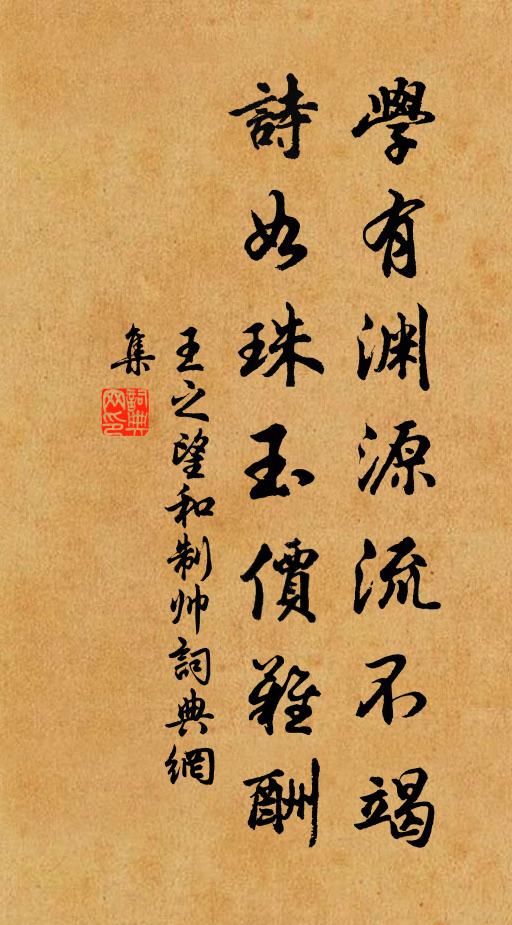 學有渊源流不竭
詩如珠玉價難酬
王之望和制帅詞典網
集
詞典
网印